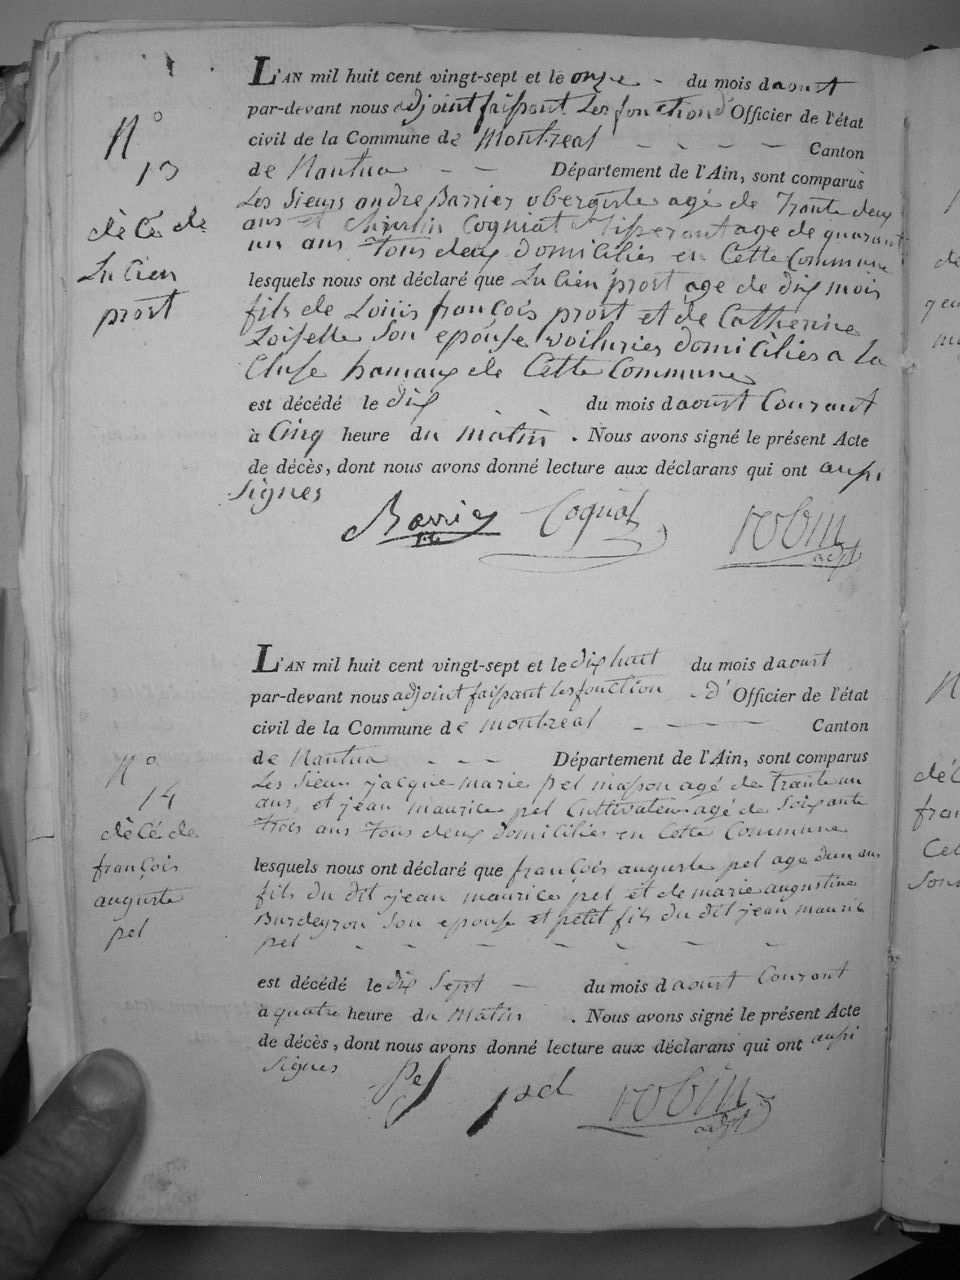 N°
13
dècé de
Lucien
prost
L'AN mil huit cent vingt-sept et le onze - du mois d aoust
par-devant nous adjoint faissant Les fonction d' Officier de l'état
civil de la Commune de Montreal - - - - Canton
de Nantua - - Département de l'Ain, sont comparus
Les Sieurs andre Barrier obergiste agé de Trante deux
ans et Cogniat Tisserant age de quarant
un ans Tous deux domiciliés en Cette Commune
lesquels nous ont déclaré que Lucien prost age de dix mois
fils de Loüis françois prost et de Catherine
Loiselle Son epouse voituries domiciliés a la
Cluse hamaux de Cette Commune
est décédé le dix du mois d aoust Courant
à Cinq heure du matin . Nous avons signé le présent Acte
de décès, dont nous avons donné lecture aux déclarans qui ont aussi
Signes
Barrier Cogniat robin
adjt
N°
14
dècé de
françois
auguste
pel
L'AN mil huit cent vingt-sept et le dix huit du mois d aoust
par-devant nous adjoint faissant les fonction - d' Officier de l'état
civil de la Commune de Montreal - - - - Canton
de Nantua - - - Département de l'Ain, sont comparus
Les Sieur jacque marie pel masson agé de Trante un
ans, et jean maurice pel Cultivateur agé de Soixante
Trois ans Tous deux domiciliés en Cette Commune
lesquels nous ont déclaré que françois auguste pel age dun ans
fils du dit jean maurice pel et de marie augustine
Burdeyron Son epouse et petit fils du dit jean maurice
pel - - - - - - -
est décédé le dix Sept - du mois d aoust Courant
à quatre heure du Matin . Nous avons signé le présent Acte
de décès, dont nous avons donné lecture aux déclarans qui ont aussi
Signes
Pel pel robin
adjt